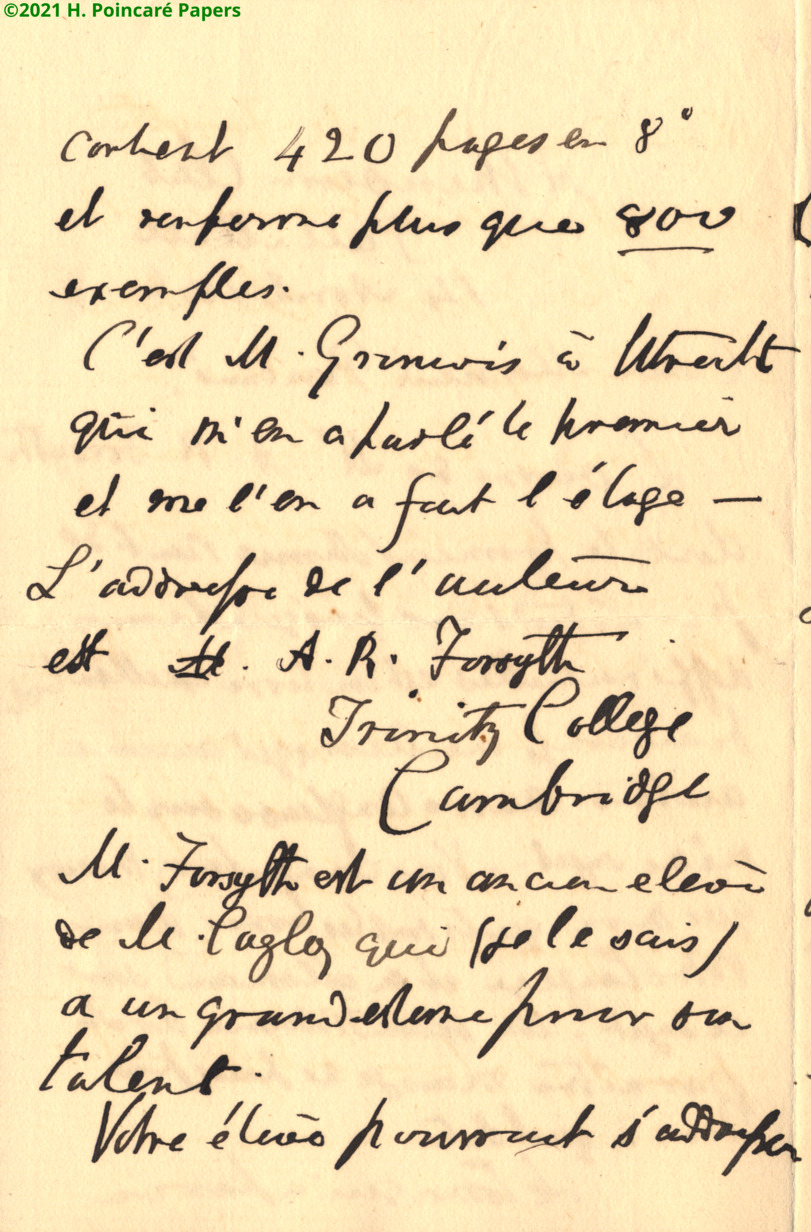 ©2021 H. Poincaré Papers
contient 420 pages en 8°
et renferme plus que 800
exemples.
C'est M. Grinwis à Utrecht
qui m'en a parlé le premier
et me l'en a fait l'éloge —
L'addresse de l'auteur
est M. A. R. Forsyth
Trinity College
Cambridge
M. Forsyth est un ancien elevè
de M. Cayley qui (je le sais)
a un grand estime pour son
talent.
Votre élève pourrait s'addresser